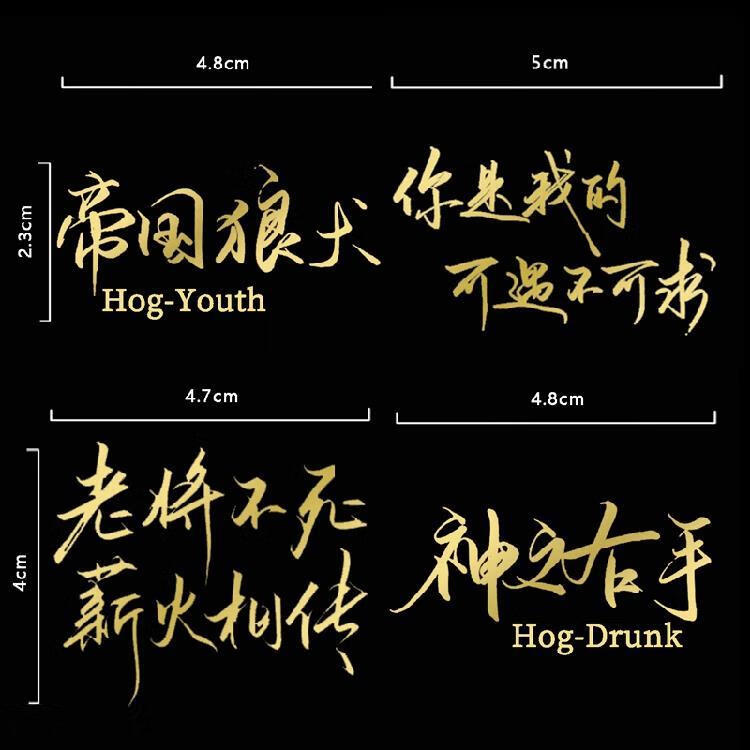 4.8cm
2.3cm
帝国狼犬
Hog-Youth
5cm
你是我的
可遇不可求
4.7cm
4cm
老将不死
薪火相传
4.8cm
神之右手
Hog-Drunk